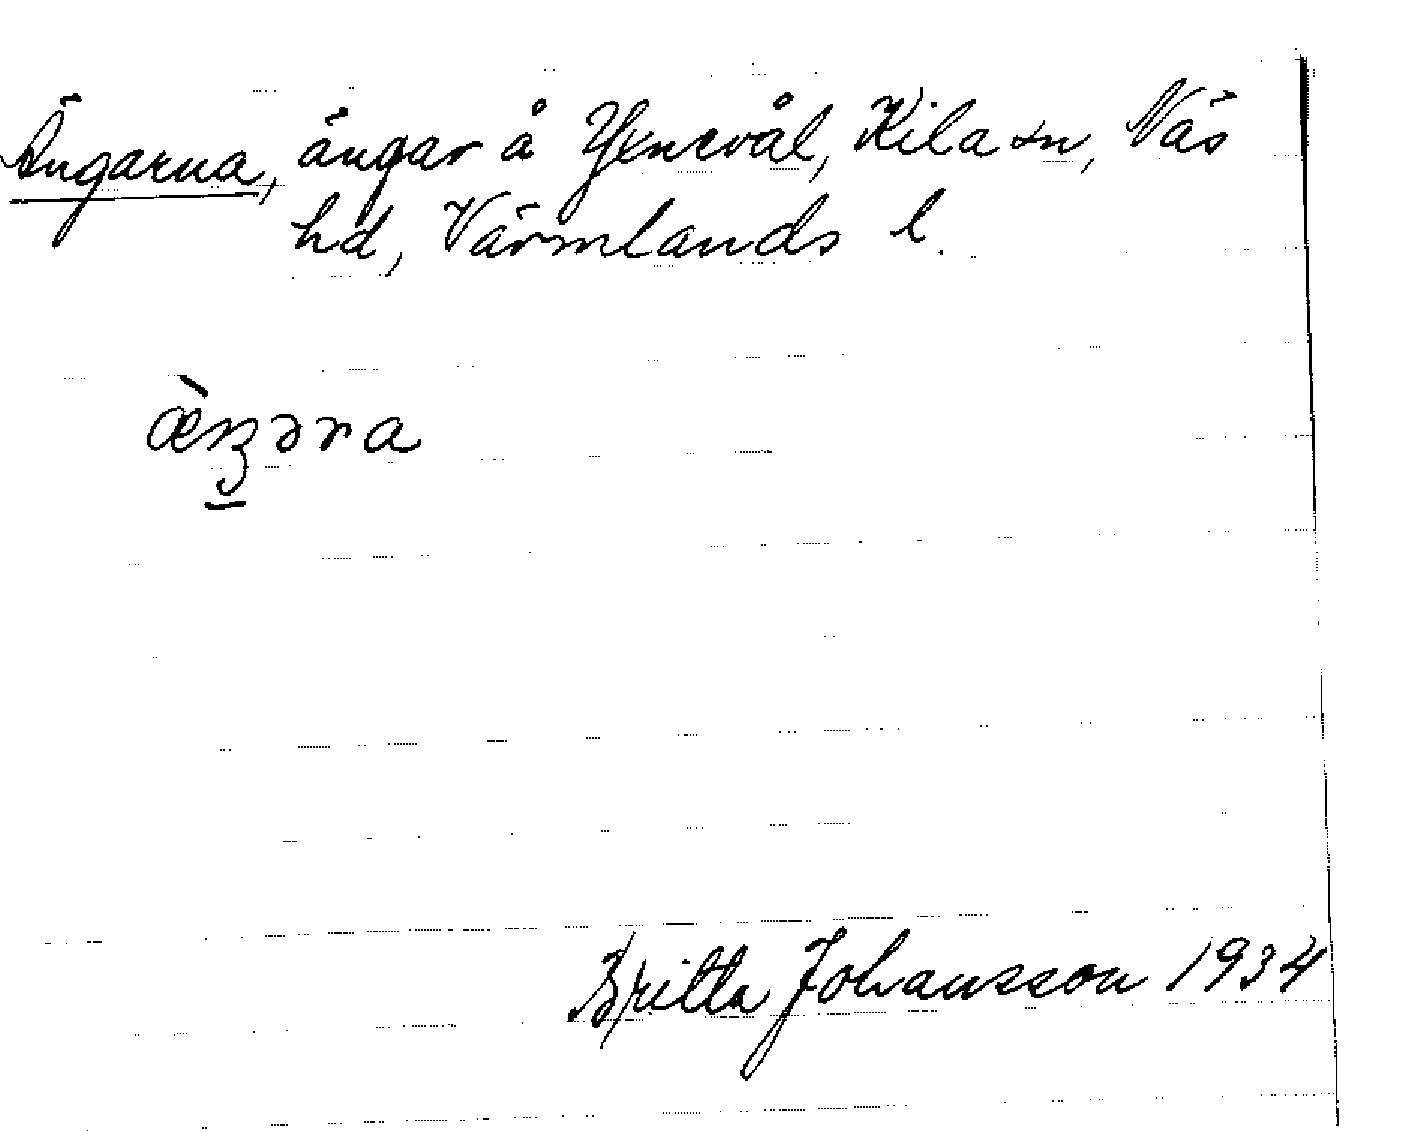 Ängarna, ängar å Yxnevål, Kila sn, Näs
hd, Värmlands l.
Britta Johansson 1934